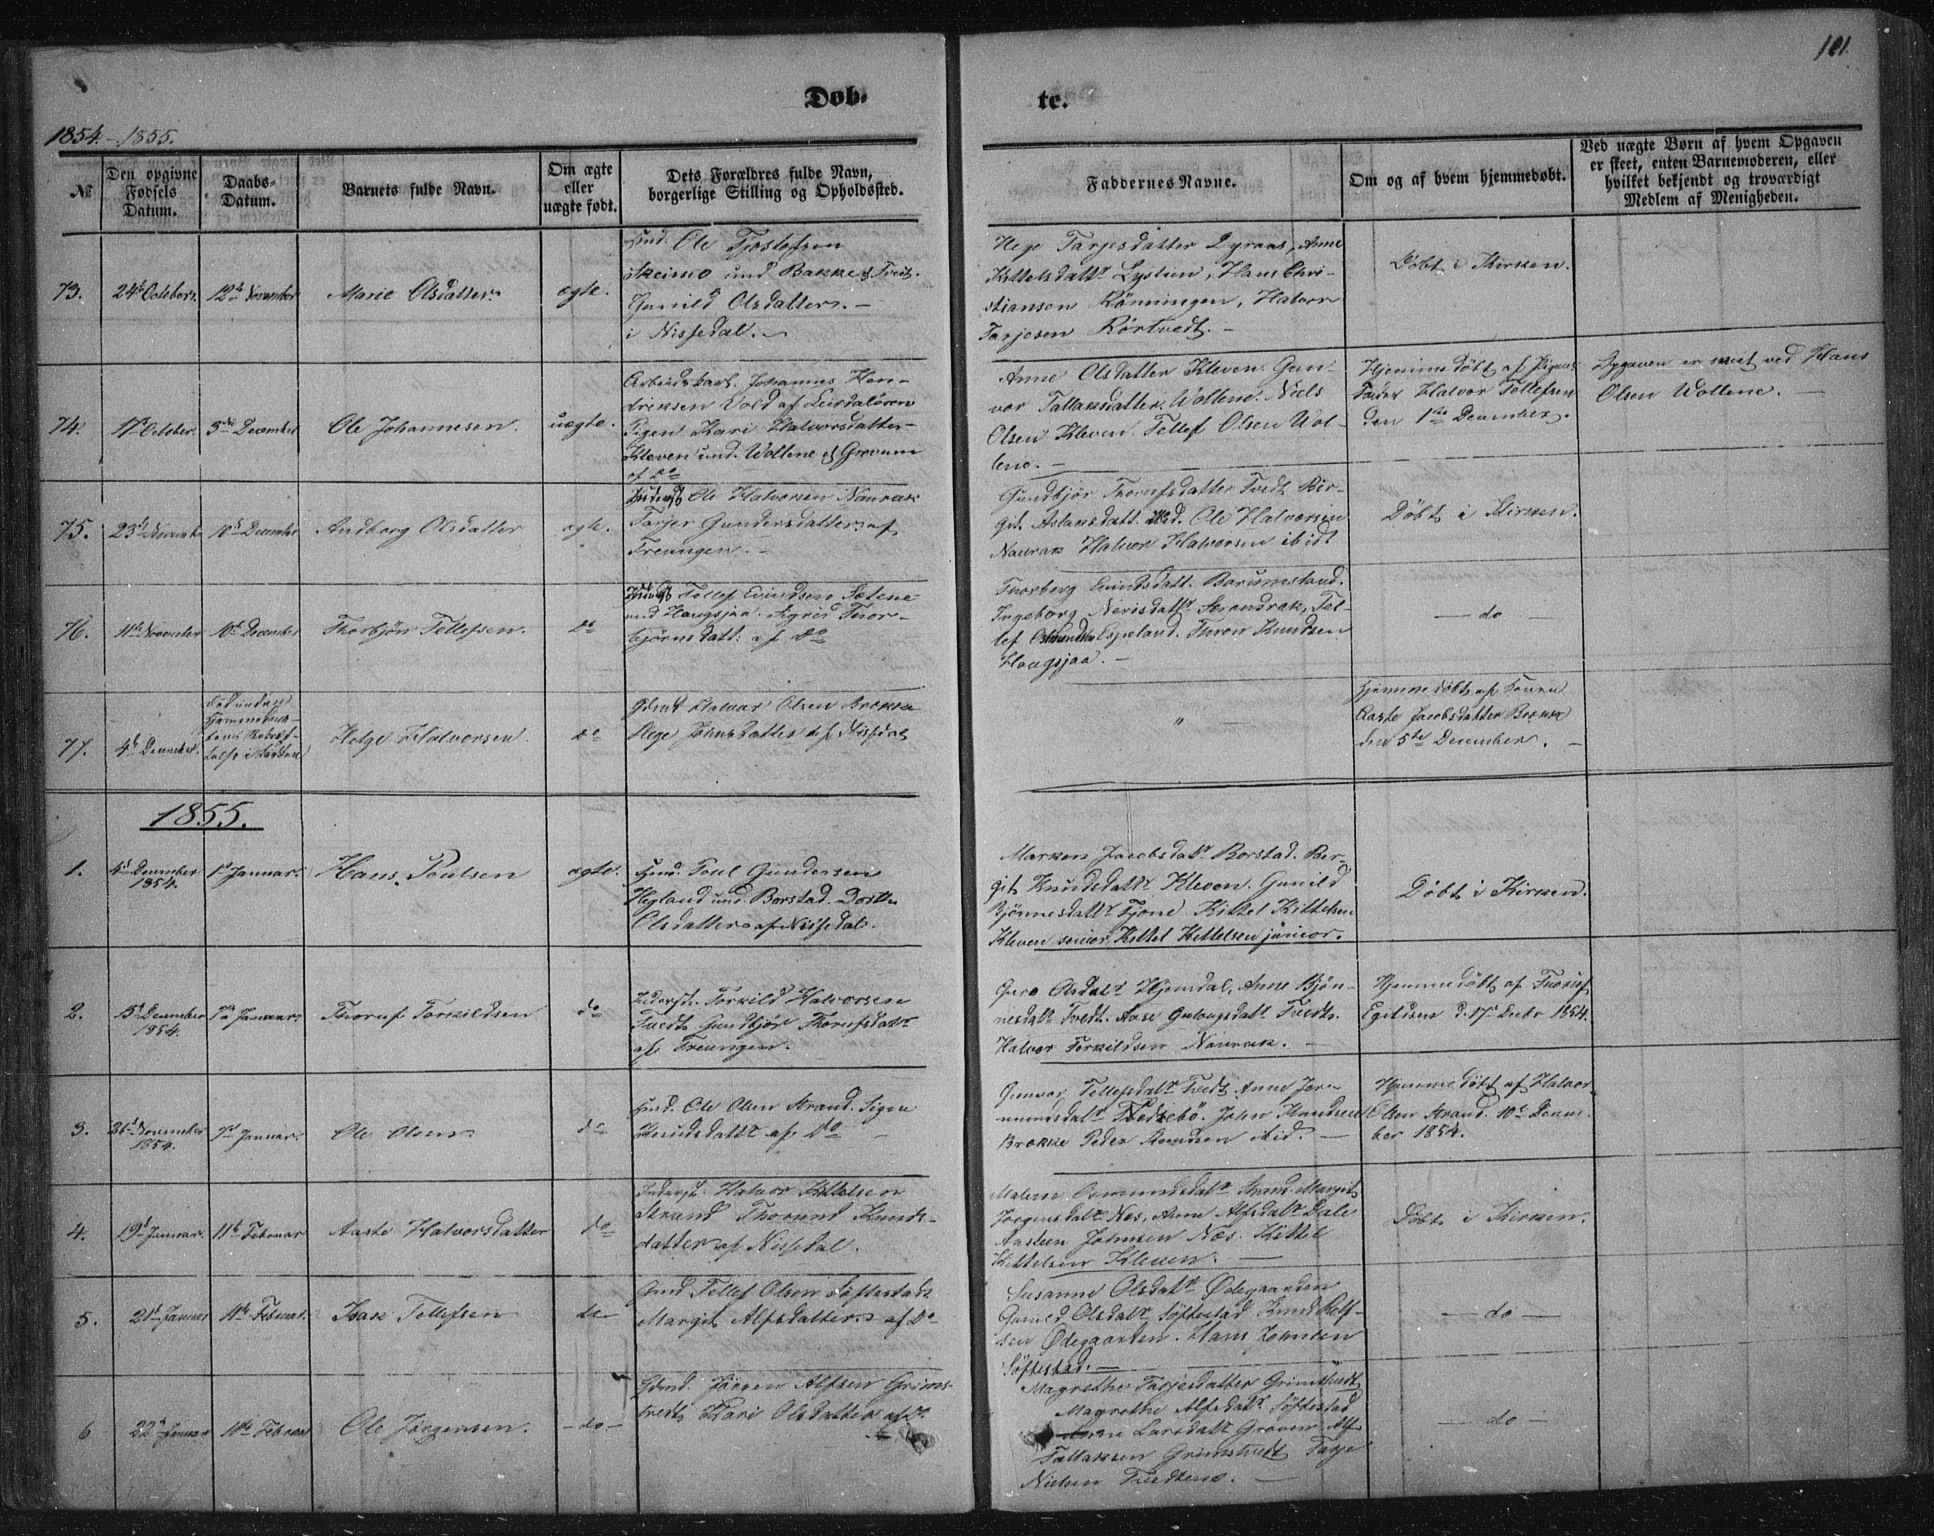 101.
Døb-
te.
1854.-1855.
№
Den opgivne
Fødsels
Datum.
Daabs-
Datum.
Barnets fulde Navn.
Om ægte
eller
uægte født.
Dets Forældres fulde Navn,
borgerlige Stilling og Opholdssted.
Faddernes Navne.
Om og af hvem hjemmedøbt.
Ved uægte Børn af hvem Opgaven
er skeet, enten Barnemoderen, eller
hvilket bekjendt og troværdigt
Medlem af Menigheden.
73.
24d October.
12te November
Marie Olsdatter
ægte.
Ole Tjostolfsen
und Bakke & Tveit.
Gunild Olsdatter. -
i Nissedal. -
Hege Tarjesdatter Dyraas, Anne
Kittelsdattr Lystien, Hans Chri-
stiansen Rönningen, Halvor
Tarjesen Rörtvedt. -
Döbt i Kirken.
74.
17d October.
3die December
Ole Johannesen.
uægte.
Arbeidskarl. Johannes Hen-
driksen Vold af Leirdalören
Pigen Kari Halvorsdatter
Kleven und. Wollene & Grovum
af do
Anne Olsdatter Kleven. Gun-
vor Tallaksdatter Wollene. Niels
Olsen Kleven. Tellef Olsen Wol-
lene. -
Hjemmedöbt af Pigens
Fader Halvor Tollefsen
den 1ste December.
Opgaven er skeet ved Hans
Olsen Wollene. -
75.
23d November
10de December
Andborg Olsdatter
ægte.
Ole Halvorsen Naurak
Tarjer Gundersdatter af
Treungen. -
Gundbjör Thorufsdatter Tvedt Bir-
git Aslansdatt. ibid. Ole Halvorsen
Naurak Halvor Halvorsen ibid
Döbt i Kirken.
76.
11te November
10de December
Thorbjön Tellefsen.
do
Tellef Eivindsen Sætene
und Haugsjaa. Sigrid Thor-
björnsdatt: af Do
Thorberg Eivindsdatt. Barumsland.
Ingeborg Nerisdattr Strandrak, Tel-
lef Osmundsen Espeland. Thron Knudsen
Haugsjaa. -
- do
77.
4de December.
död under
Hjemmedaab-
ens
i Kirken
Helge Halvorsen
do
Gbmd Halvor Olsen Brokke
Hege Johnsdatter af Nissedal
"
Hjemmedöbt af
Aaste Jacobsdatter Brokke
den 5te December. -
1855.
1.
4d December
1854.
1ste Januar.
Hans Poulsen
ægte.
Huusmd. Poul Gundersen
Hegland und Borstad. Dorthe
Olsdatter af Nissedal.
Marken Jacobsdatr Borstad. Ber-
git Knudsdattr Kleven. Gunild
Björnesdattr Fjone Kittel Kittelsen
Kleven senior, Kittel Kittelsen junior.
Döbt i Kirken.
2.
15d December
1854.
7de Januar.
Thoruf Torkildsen
do
Inderst. Torkild Halvorsen
Tvedt. Gundbjör Thorufsdattr
af Treungen.
Guro Olsdatr Hjemdal, Anne Björ-
nesdatr Tvedt. Aase Gulougsdatr Tvedt.
Halvor Torkildsen Naurak. -
Hjemmedöbt af Thoruf
Egilsen d. 17d Decbr 1854.
3.
26d November
1854.
7de Januar.
Ole Olsen
do
Ole Olsen Strand. Signe
Knudsdattr af Do -
Gunvor Tellefsdatr Tvedt. Anne Jör-
mundsdatr Tvedsebö. John Knudsen
Brokke Peder Knudsen ibid. -
Hjemmedöbt af Halvor
Olsen Strand. 10de Decem-
ber 1854.
4.
19d Januar.
11te Februar
Aaste Halvorsdatter
do
Inderst. Halvor Kittelsen
Strand Thorund Knuds-
datter af Nissedal.
Malene Osmundsdatr Strand. Margit
Jörgensdatr Næs. Anne Alfsdatr Dale
Aasteen Johnsen Næs. Kittel
Kittelsen Kleven. -
Döbt i Kirken.
5.
21d Januar
11te Februar.
Isak Tellefsen
do
Gbmd Tellef Olsen Söftestad.
Margit Alfsdatter af Do
Susanne Olsdatr Ødegaarden
Gunild Olsdatr Söftestad Knud Rolf-
sen Ødegaarden. Hans Johnsen
Söftestad. -
- do -
6
22d Januar
11te Februar
Ole Jörgensen.
- do -
Gbmd. Jörgen Alfsen Grims-
tvedt Kari Olsdatter af Do
Magrethe Tarjesdatter Grimstvedt
Magrethe Alfsdatr Söftestad
Anne Larsdatr Groven Alf
Tallaksen Grimstvedt Tarje
Nielsen Tvedtene. -
- do -